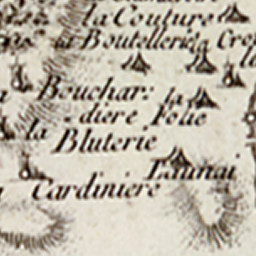 la Couture
la Boutellerie
la Bouchar:
diere
la Folie
la Bluterie
Launai
Cardiniere